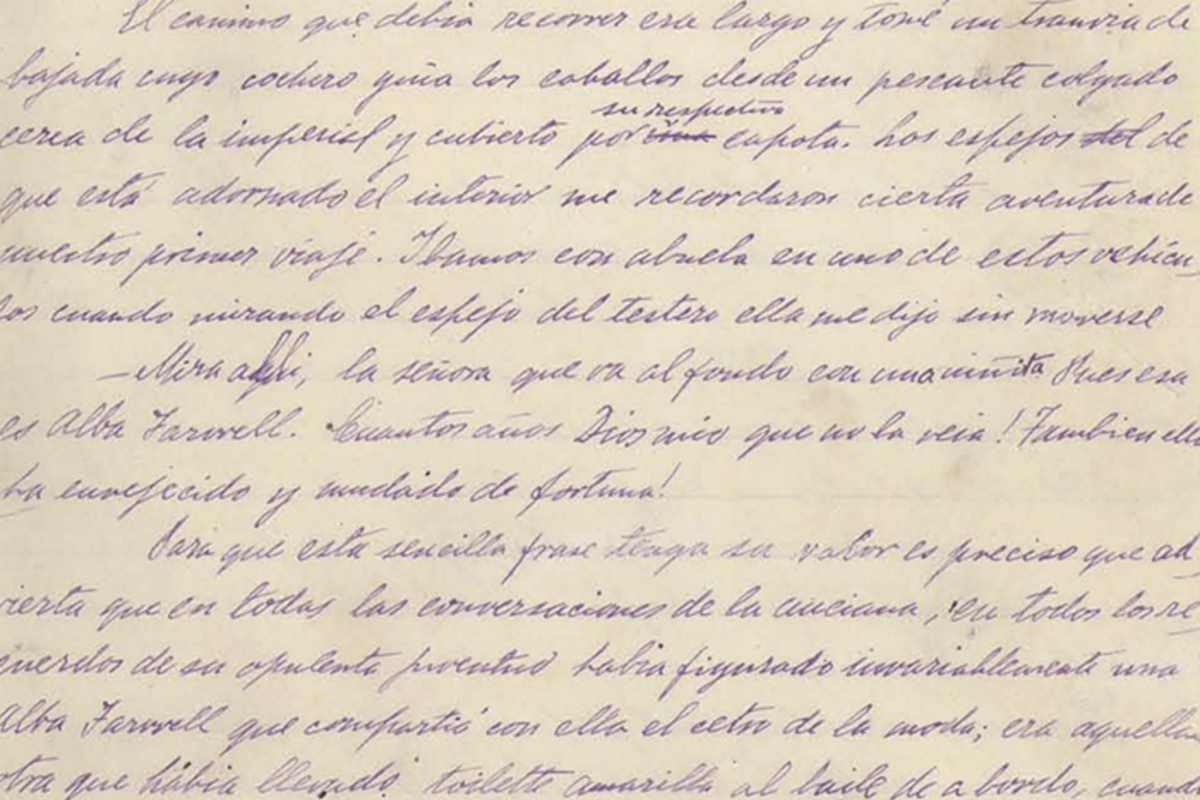 El camino que debia recorrer era largo y tomé un tranvia de
bajada cuyo cochero guia los caballos desde un pescante colgado
su respectiva
cerca de la imperial y cubierto por una capota. Los espejos del de
que está adornado el interior me recordaron cierta aventura de
nuestro primer viaje. Ibamos con abuela en uno de estos vehícu
los cuando mirando el espejo del testero ella me dijo sin moverse
—Mira alli, la señora que va al fondo con una niñita Pues esa
es Alba Farwell. Cuantos años Dios mio que no la veia! Tambien ella
ha envejecido y mudado de fortuna!
Para que esta sencilla frase tenga su valor es preciso que ad
vierta que en todas las conversaciones de la anciana, en todos los re
cuerdos de su opulenta juventud habia figurado invariablemente una
Alba Farwell que compartió con ella el cetro de la moda; era aquella
otra que habia llevado toilette amarilla al baile de a bordo, cuando